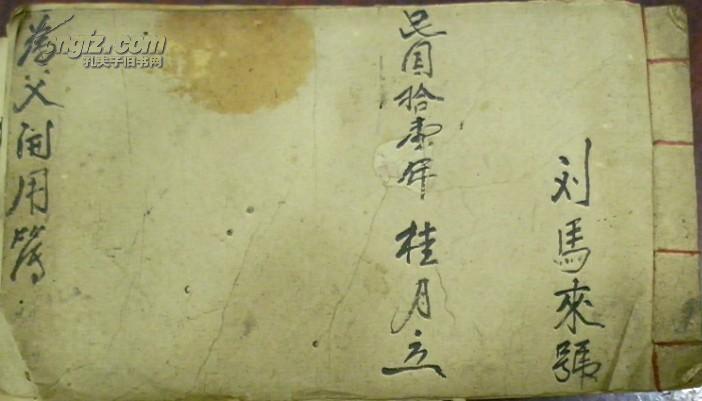 刘馬來號
民国拾壹年 桂月立
父用簿
kongfz.com
孔夫子旧书网